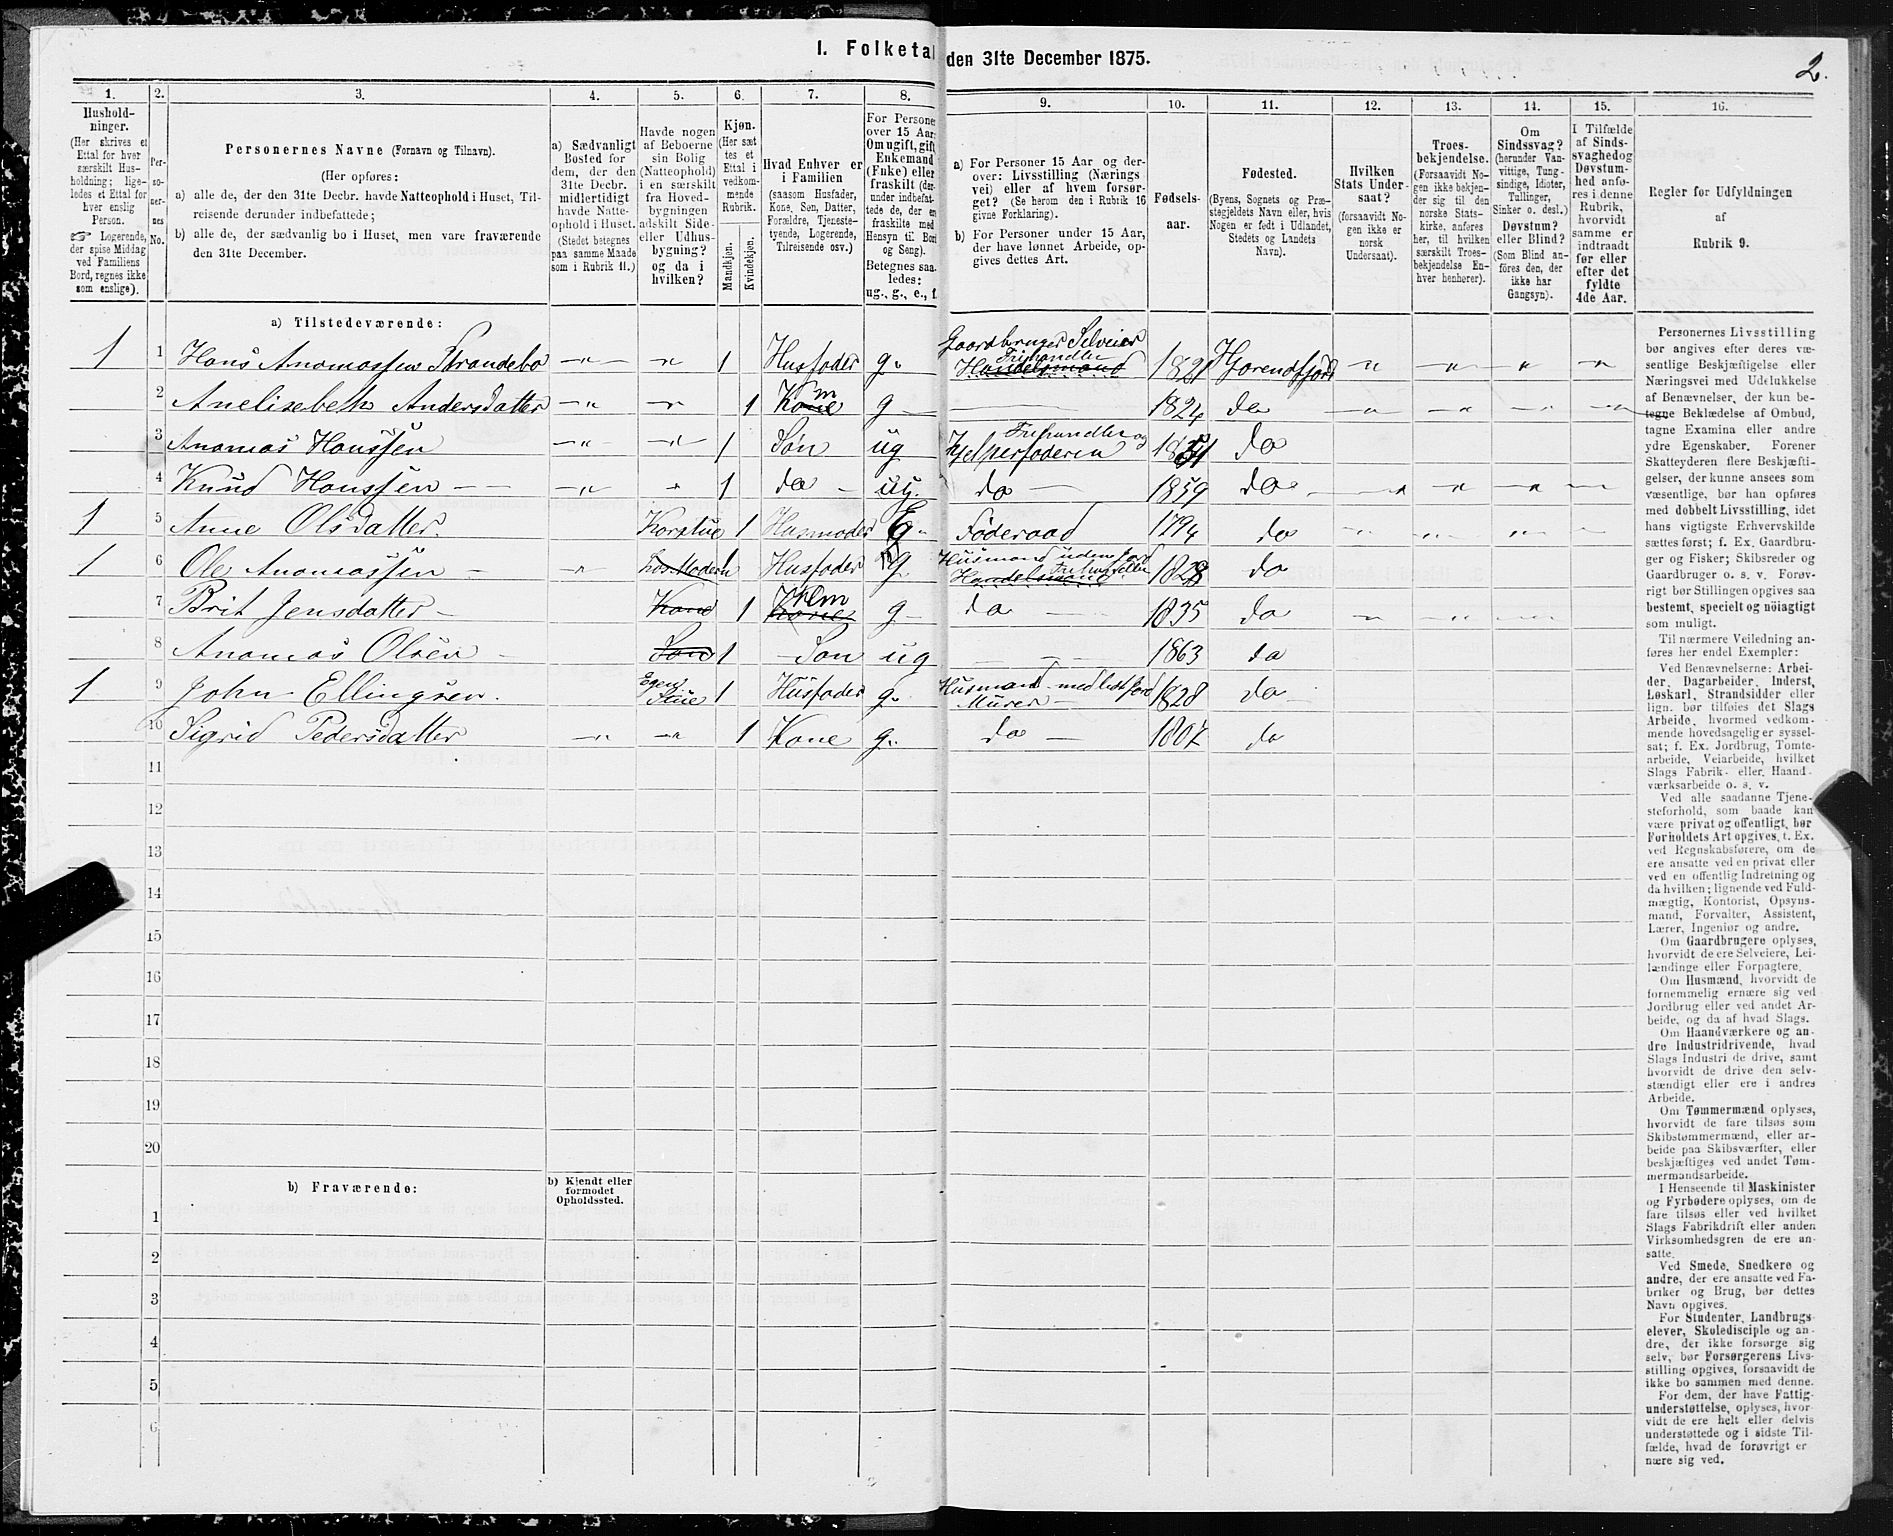 I. Folketal den 31te December 1875.
2.
1.
2.
3.
4.
5.
6.
7.
8.
9.
10.
11.
12.
13.
14.
15.
16.
Hushold-
ninger.
(Her skrives et
Ettal for hver
særskilt Hus-
holdning; lige-
ledes et Ettal for
hver enslig
Person.
☞ Logerende,
der spise Middag
ved Familiens
Bord, regnes ikke
som enslige).
Per-
so-
ner-
nes
No.
Personernes Navne (Fornavn og Tilnavn).
(Her opføres:
a) alle de, der den 31te Decbr. havde Natteophold i Huset, Til-
reisende derunder indbefattede;
b) alle de, der sædvanlig bo i Huset, men vare fraværende
den 31te December.
a) Sædvanligt
Bosted for
dem, der den
31te Decbr.
midlertidigt
havde Natte-
ophold i Huset.
(Stedet betegnes
paa samme Maade
som i Rubrik 11.)
Havde nogen
af Beboerne
sin Bolig
(Natteophold)
i en særskilt
fra Hoved-
bygningen
adskilt Side-
eller Udhus-
bygning?
og da i
hvilken?
Kjøn.
(Her sæt-
tes et
Ettal i
vedkom-
mende
Rubrik.
Mandkjøn.
Kvindekjøn.
Hvad Enhver er
i Familien
(saasom Husfader,
Kone, Søn, Datter,
Forældre, Tjeneste-
tyende, Logerende,
Tilreisende osv.)
For Persone
over 15 Aar:
Om ugift, gift
Enkemand
(Enke) eller
fraskilt (der-
under indbefat-
tede de, der er
fraskilte med
Hensyn til Bord
og Seng).
Betegnes saa-
ledes:
ug., g., e., f.
a) For Personer 15 Aar og der-
over: Livsstilling (Nærings-
vei) eller af hvem forsør-
get? (Se herom den i Rubrik 16
givne Forklaring).
b) For Personer under 15 Aar,
der have lønnet Arbeide, op-
gives dettes Art.
Fødsels-
aar.
Fødested.
(Byens, Sognets og Præ-
stegjeldets Navn eller, hvis
Nogen er født i Udlandet,
Stedets og Landets
Navn).
Hvilken
Stats Under-
saat?
(forsaavidt No-
gen ikke er
norsk
Undersaat).
Troes-
bekjendelse.
(Forsaavidt No-
gen ikke bekjen-
der sig til den
norske Stats-
kirke, anføres
her, til hvilken
særskilt Troes-
bekjendelse En-
hver henhører).
Om
Sindssvag?
(herunder Van-
vittige, Tung-
sindige, Idioter,
Tullinger,
Sinker o. desl.)
Døvstum?
eller Blind?
(Som Blind an-
føres den, der
ikke har
Gangsyn).
I Tilfælde
af Sinds-
svaghed og
Døvstum-
hed anfø-
res i denne
Rubrik,
hvorvidt
samme er
indtraadt
før eller
efter det
fyldte
4de Aar.
Regler for Udfyldningen
af
Rubrik 9.
a) Tilstedeværende:
1 1 Hans Anomossen Strandebo 1 Husfader g. Gaardbruger Selveier Frihandler Handelsmand 1821 Hjørendfjord
2 Anelisebeth Andersdatter 1 Kone m g 1824 do
3 Anamas Hanssen 1 Søn ug Hjelperfaderen Frihandler og 1851 do
4 Knud Hanssen 1 do ug. do 1859 do
1 5 Anne Olsdatter. 1 Husmoder E Føderaad 1794 do
1 6 Ole Anomossen 1 Husfader g Husmand uden Jord Handelsmand Frihandler 1828 do
7 Brit Jensdatter Kone 1 Kone g do 1835 do
8 Anamas Olsen Søn 1 Søn ug 1863 do
1 9 John Ellingsen. Egen Stue 1 Husfader g. Husmand med lidt Jord Murer 1828 do
10 Sigrid Pedersdatter 1 Kone g. do 1807 do
11
12
13
14
15
16
17
18
19
20
b) Fraværende:
b) Kjendt eller
formodet
Opholdssted.
1
2
3
4
5
6
Personernes Livsstilling
bør angives efter deres væ-
sentlige Beskjæftigelse eller
Næringsvei med Udelukkelse
af Benævnelser, der kun be-
tegne Beklædelse af Ombud,
tagne Examina eller andre
ydre Egenskaber. Forener
Skatteyderen flere Beskjæfti-
gelser, der kunne ansees som
væsentlige, bør han opføres
med dobbelt Livsstilling, idet
hans vigtigste Erhvervskilde
sættes først; f. Ex. Gaardbru-
ger og Fisker; Skibsreder og
Gaardbruger o. s. v. Forøv-
rigt bør Stillingen opgives saa
bestemt, specielt og nöiagtigt
som muligt.
Til nærmere Veiledning an-
føres her endel Exempler:
Ved Benævnelserne: Arbei-
der, Dagarbeider, Inderst,
Løskarl, Strandsidder eller
lign. bør tilføies det Slags
Arbeide, hvormed vedkom-
mende hovedsagelig er syssel-
sat; f. Ex. Jordbrug, Tomte-
arbeide, Veiarbeide, hvilket
Slags Fabrik- eller Haand-
værksarbeide o. s. v.
Ved alle saadanne Tjene-
steforhold, som baade kan
være privat og offentligt, bør
Forholdets Art opgives, t. Ex.
ved Regnskabsførere, om de
ere ansatte ved en privat eller
ved en offentlig Indretning og
da hvilken; lignende ved Fuld-
mægtig, Kontorist, Opsyns-
mand, Forvalter, Assistent,
Lærer, Ingeniør og andre.
Om Gaardbrugere oplyses,
hvorvidt de ere Selveiere, Lei-
lændinge eller Forpagtere.
Om Husmænd, hvorvidt de
fornemmelig ernære sig ved
Jordbrug eller ved andet Ar-
beide, og da af hvad Slags.
Om Haandværkere og an-
dre Industridrivende, hvad
Slags Industri de drive, samt
hvorvidt de drive den selv-
stændigt eller ere i andres
Arbeide.
Om Tømmermænd oplyses,
hvorvidt de fare tilsøs som
Skibstømmermænd, eller ar-
beide paa Skibsværfter, eller
beskjæftiges ved andet Tøm-
mermandsarbeide.
I Henseende til Maskinister
og Fyrbødere oplyses, om de
fare tilsøs eller ved hvilket
Slags Fabrikdrift eller anden
Virksomhedsgren de ere an-
satte.
Ved Smede, Snedkere og
andre, der ere ansatte ved Fa-
briker og Brug, bør dettes
Navn opgives.
For Studenter, Landbrugs-
elever, Skoledisciple og an-
dre, der ikke forsørge sig
selv, bør Forsørgerens Livs-
stilling opgives, forsaavidt de
ikke bo sammen med denne.
For dem, der have Fattig-
understøttelse, oplyses, hvor-
vidt de ere helt eller delvis
understøttede og i sidste Til-
fælde, hvad de forøvrigt er
nære sig ved.